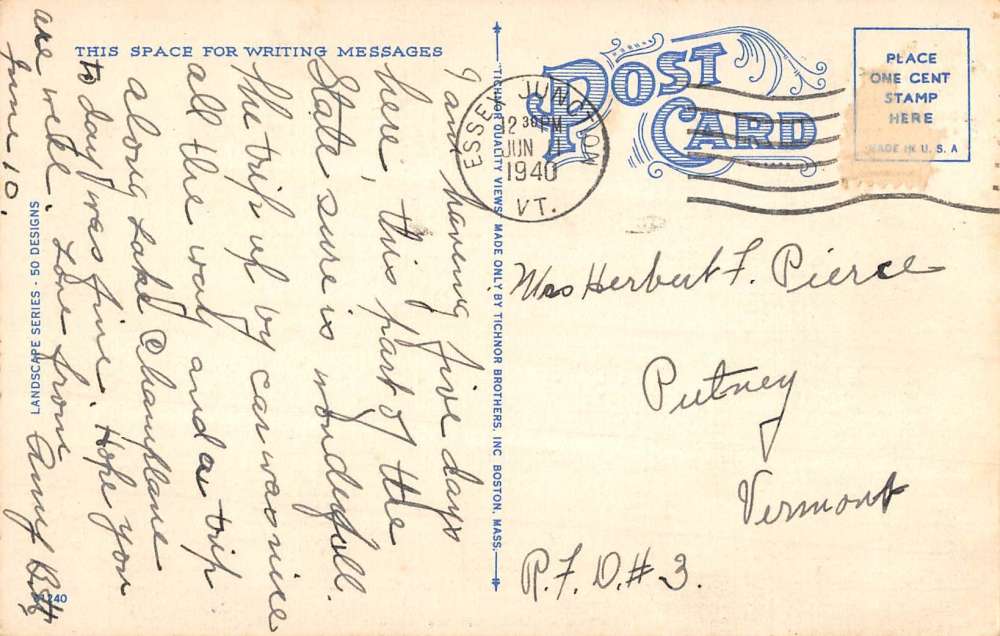 THIS SPACE FOR WRITING MESSAGES
I am having five days
here, this part of the
State sure is wonderfull.
The trip up by car was nice
all the way and a trip
along Lake Champlane
to day was fine. Hope you
are well. Love from
June 10.
LANDSCAPE SERIES - 50 DESIGNS
1240
TICHNOR QUALITY VIEWS MADE ONLY BY TICHNOR BROTHERS, INC BOSTON, MASS.
POST CARD
ESSEX JUNCTION
12 30 PM
JUN
1940
VT.
PLACE
ONE CENT
STAMP
HERE
MADE IN U. S. A
Mrs Herbert F. Pierce
Putney
Vermont
R.F.D.# 3.